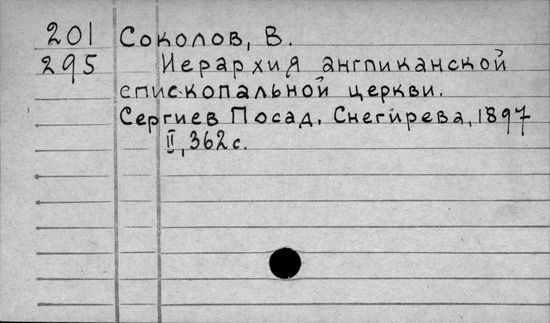 201 Соколов, В.
295 Иерархия англиканской
епископальной церкви.
Сергиев Посад, Снегирева, 1897
II, 362 с.